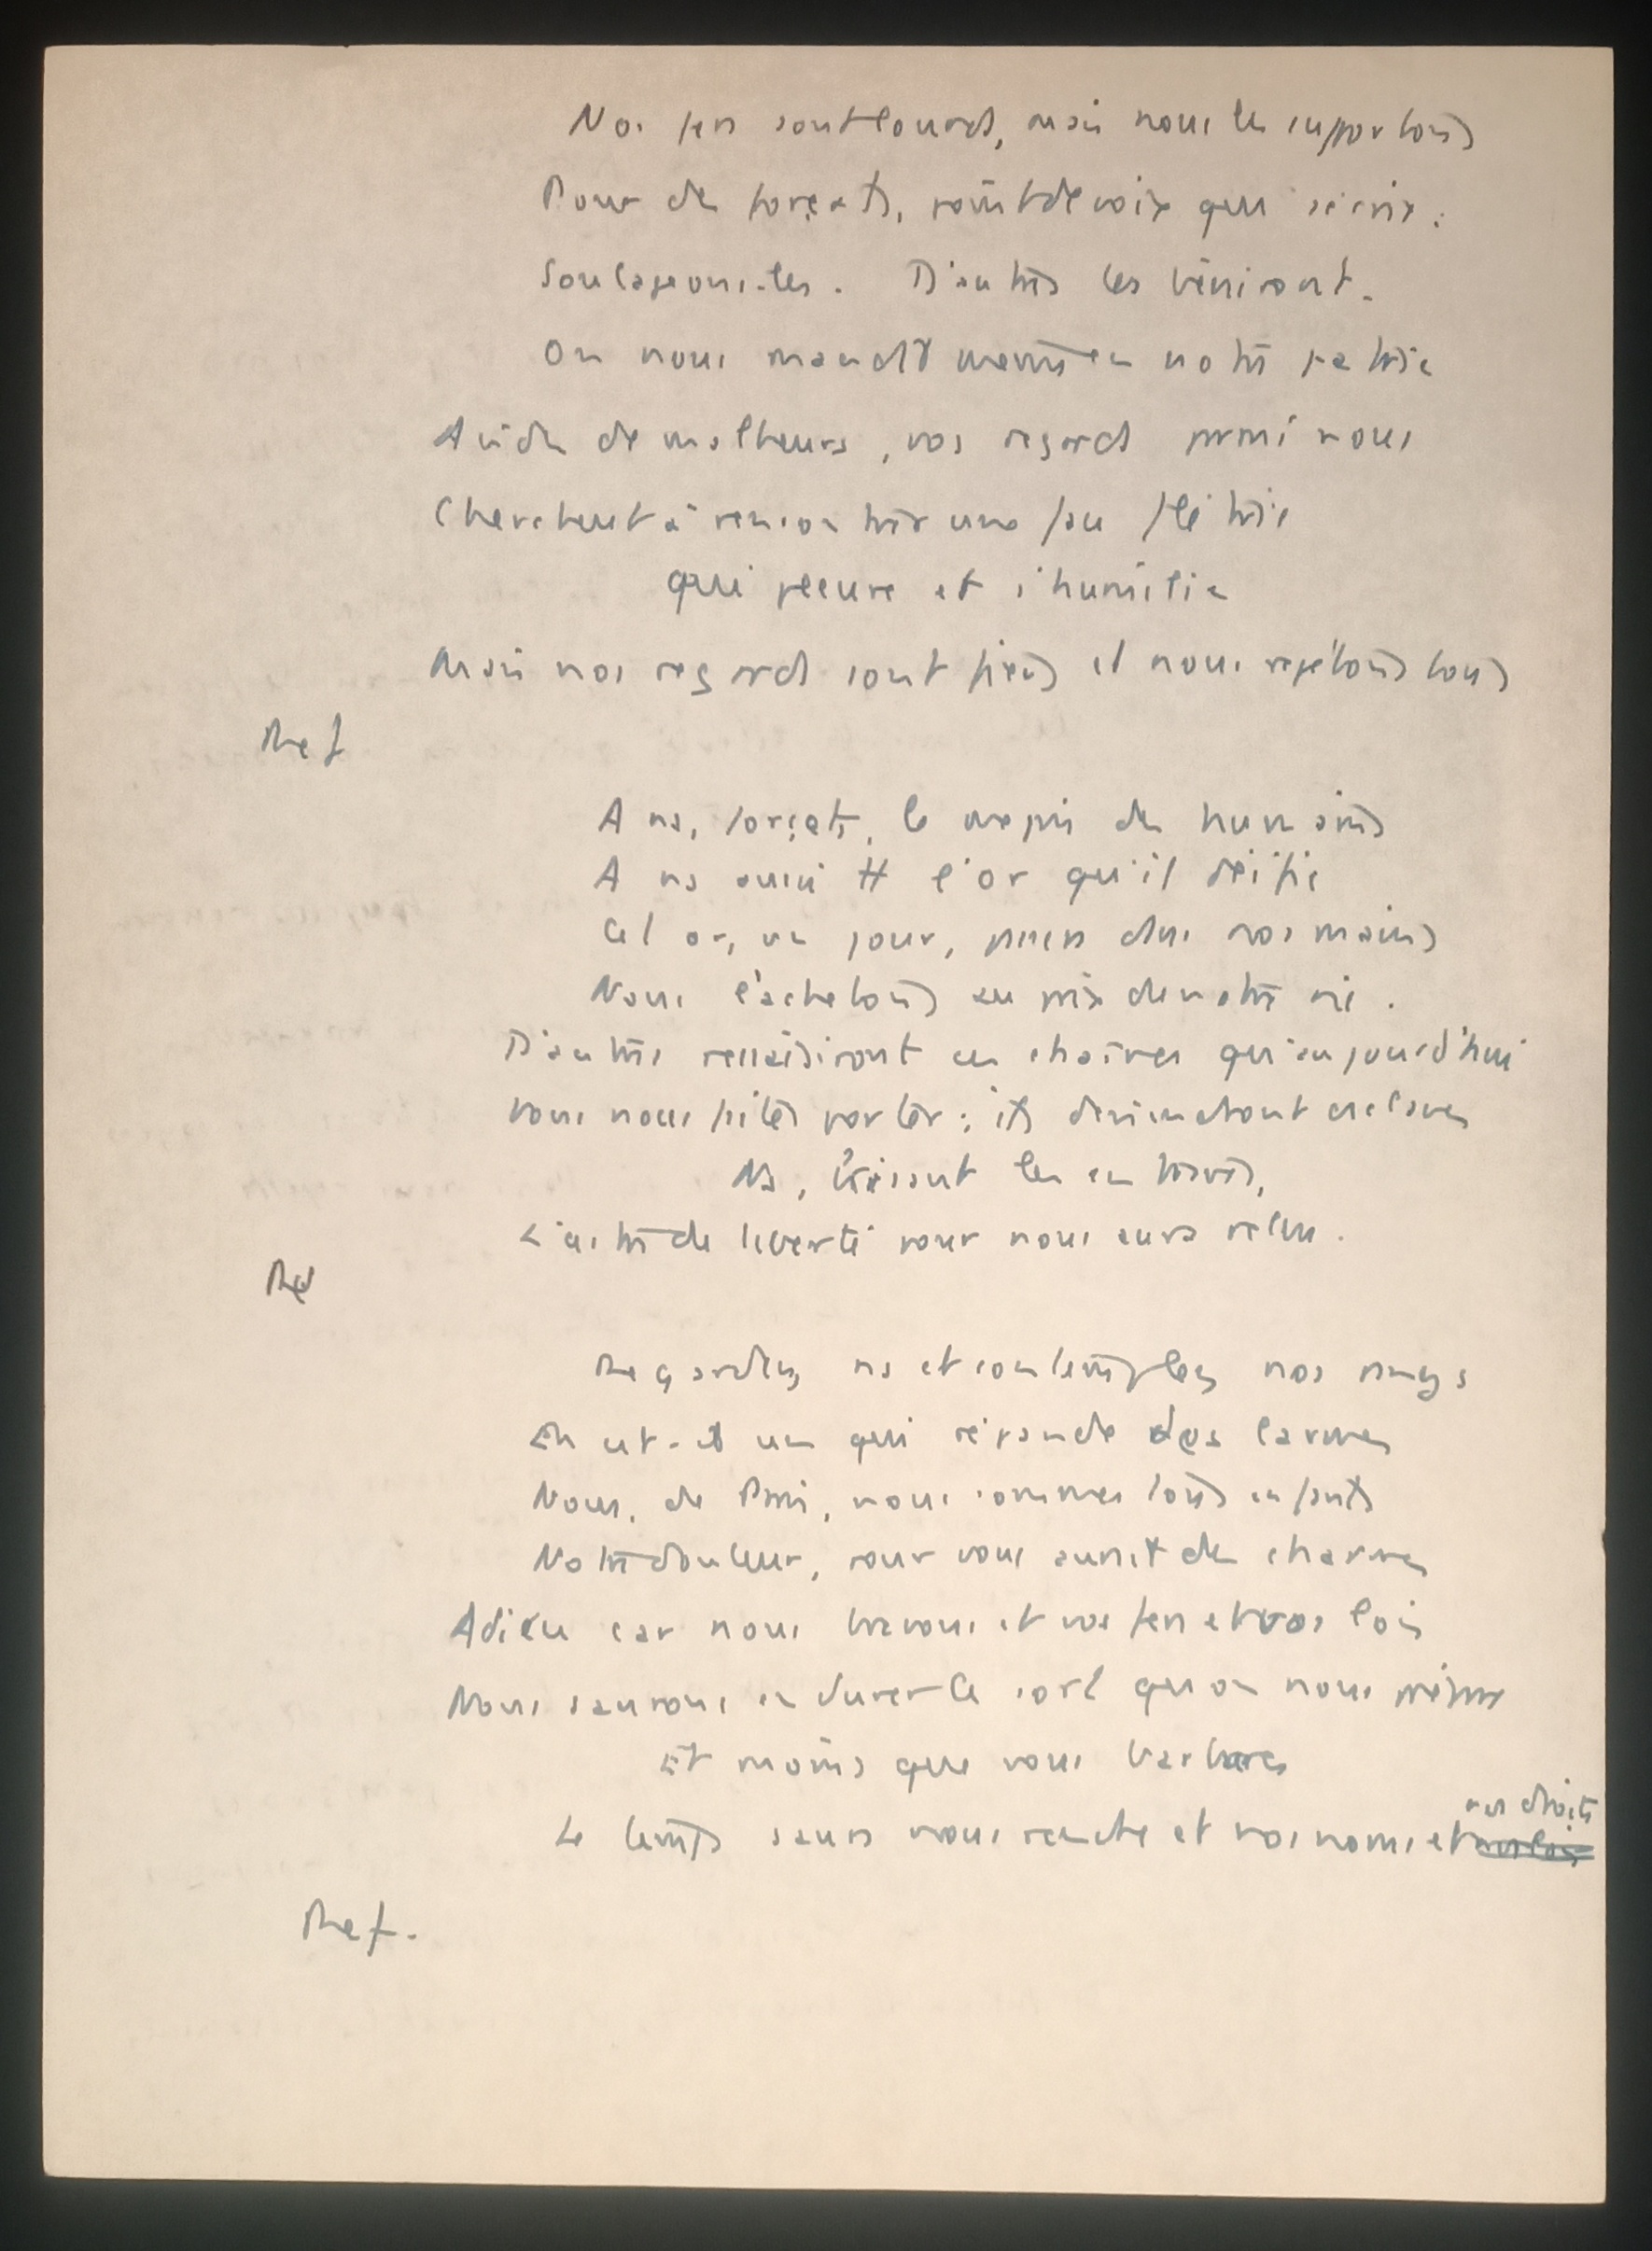 Nos fers sont lourds, mais nous les supportons
Pour des forçats, point de voix qui s'écrie :
Soulageons-les. D'autres les béniront.
On nous maudit même en notre patrie
Avides de malheurs, vos regards parmi nous
Cherchent à rencontrer une peu flétrie
qui pleure et s'humilie
Mais nos regards sont fiers et nous répétons tous
Ref
A ns, forçats, le mépris des humains
A ns aussi l'or qu'il déifie
Cet or, un jour, passera dans nos mains
Nous l'achetons au prix de notre vie.
D'autres ressaisiront ces chaînes qu'aujourd'hui
vous nous faites porter ; ils deviendront esclaves
Ns, brisant les entraves,
L'astre de liberté pour nous aura relui.
Ref
Regardez ns et contemplez nos rangs
En est-il un qui répande des larmes
Nous, de Paris, nous sommes tous enfants
Notre douleur, pour vous aurait des charmes
Adieu car nous bravons et vos fers et vos lois
Nous saurons endurer le sort qu'on nous prépare
Et moins que vous barbares
Le temps saura nous rendre et nos noms et nos droits
Ref.